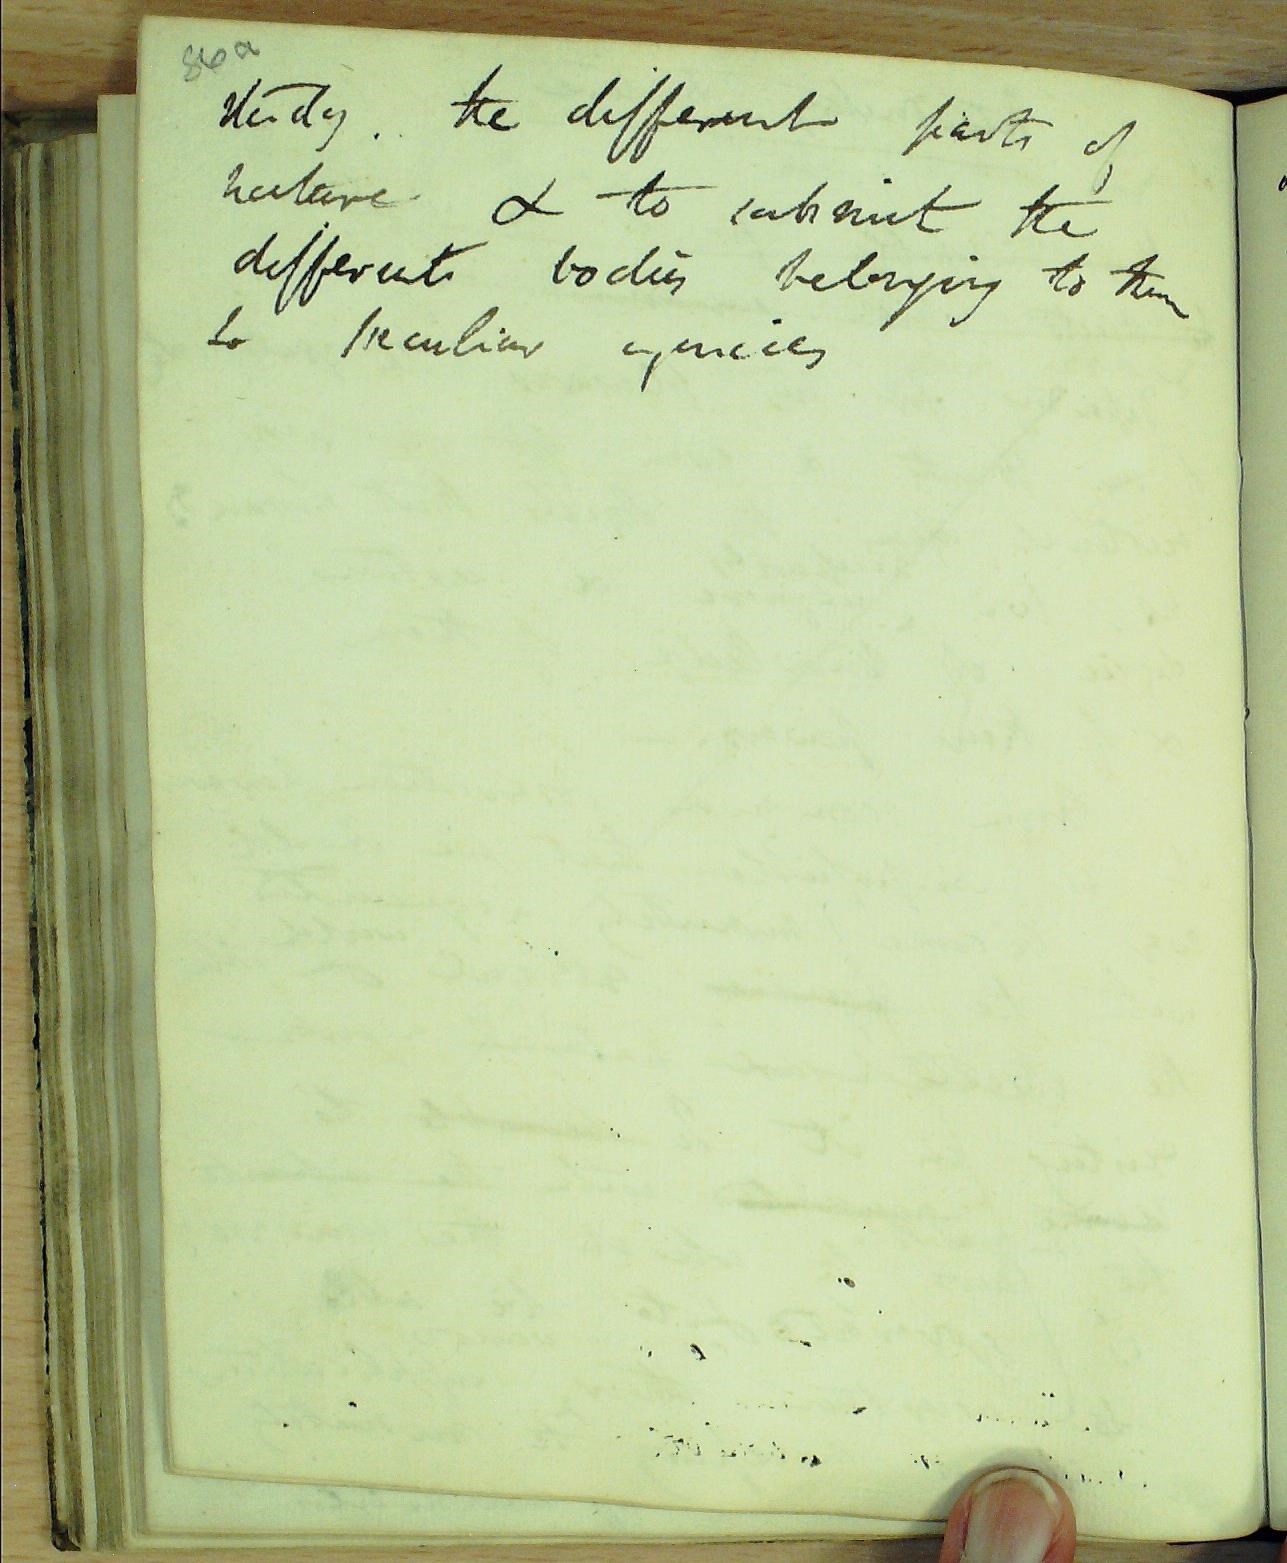 86a
study. the different parts of
nature & to submit the
different bodies belonging to them
to peculiar agencies